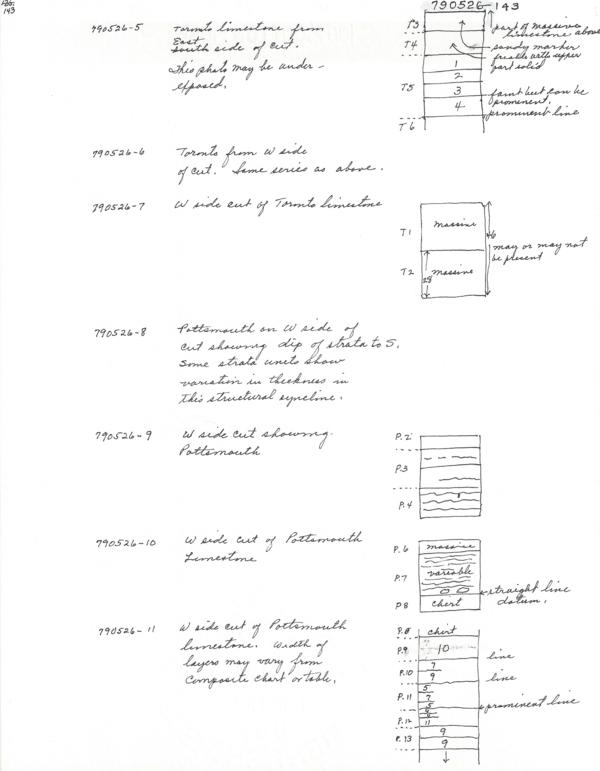 Pg.
143
790526-143
790526-5
Toronto limestone from
East
South side of cut.
This photo may be under-
exposed.
T3
T4
T5
T6
1
2
3
4
part of massive
limestone above
sandy marker
part solid
faint but can be
prominent.
prominent line
790526-6
Toronto from W side
of cut. Same series as above.
790526-7
W side cut of Toronto limestone
T1
Massive
46
may or may not
be present
T2
28
Massive
790526-8
Pottsmouth on W side of
cut showing dip of strata to S.
Some strata units show
variation in thickness in
this structural syncline.
790526-9
W side cut showing
Pottsmouth
P.2
P.3
P.4
790526-10
W side cut of Pottsmouth
Limestone
P.6
massive
P.7
variable
P8
chert
straight line
datum.
790526-11
W side cut of Pottsmouth
limestone. Width of
layers may vary from
composite chart or table.
P.8
chert
P.9
10
line
P.10
7
9
line
P.11
5
7
5
prominent line
P.12
11
P.13
9
9